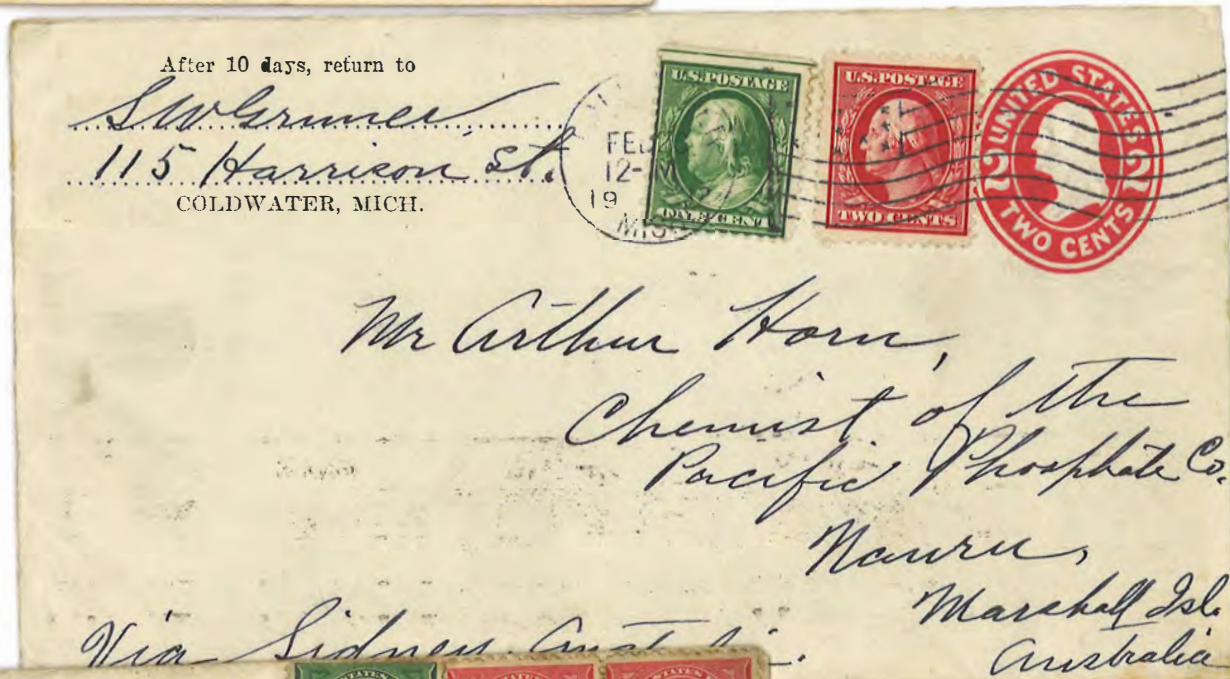 After 10 days, return to
S W Gruner
115 Harrison St.
COLDWATER, MICH.
FEB
12- M
19
MICH
U.S.POSTAGE
ONE CENT
U.S.POSTAGE
TWO CENTS
UNITED STATES
2 2
TWO CENTS
Mr Arthur Horn,
Chemist of the
Pacific Phosphate Co.
Nauru,
Marshall Isl.
Australia
Via Sidney